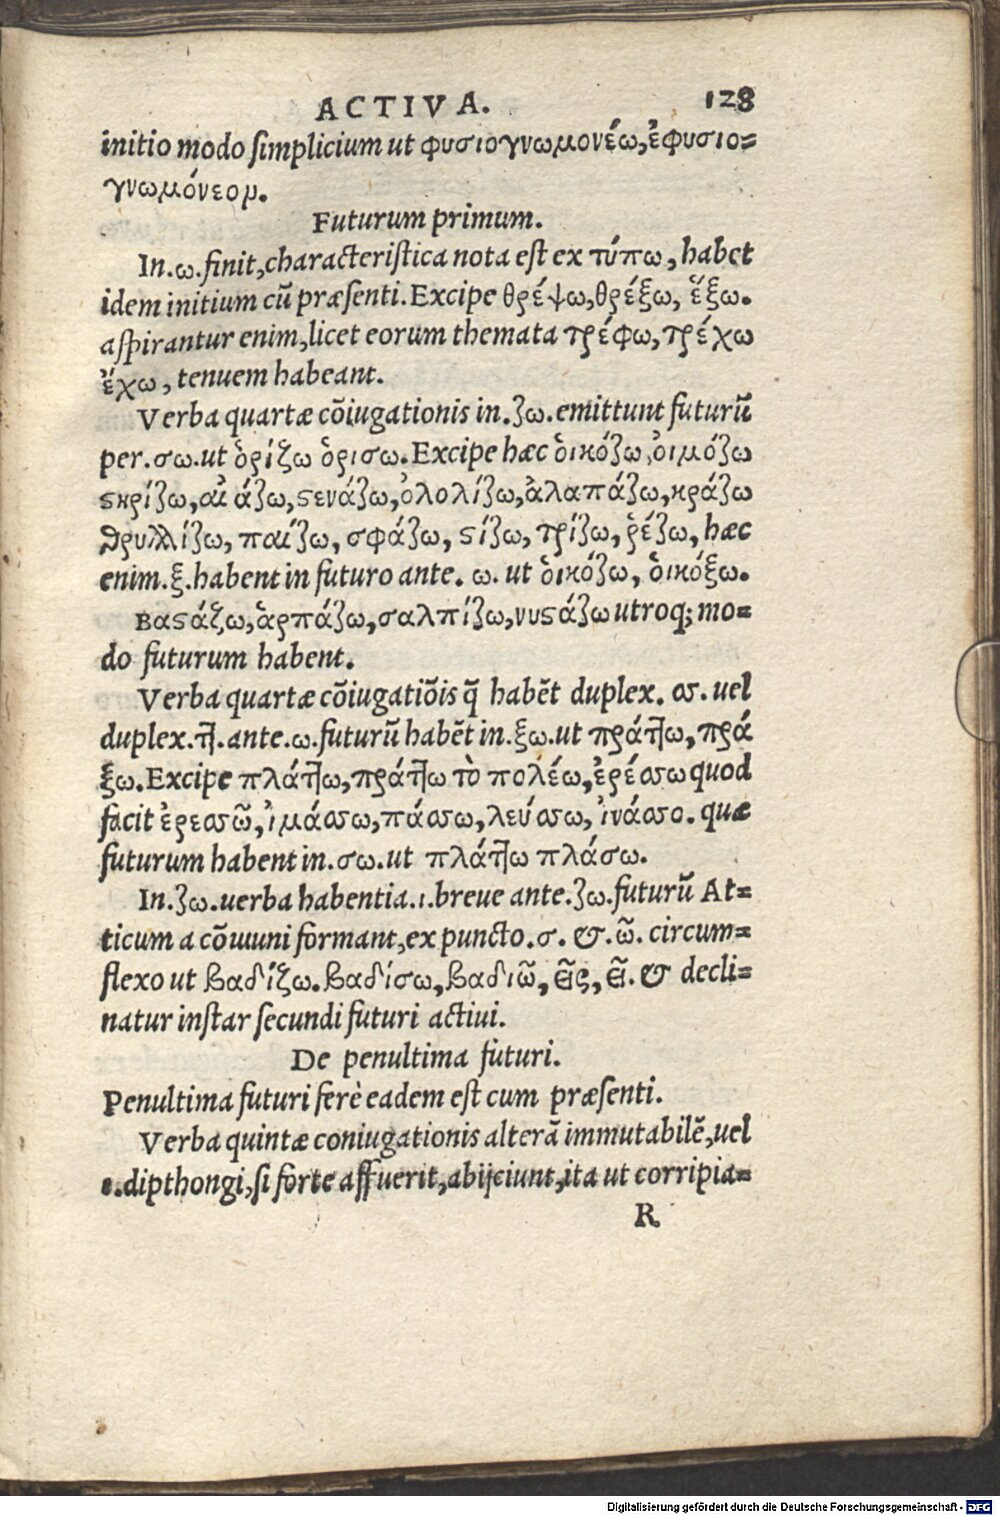 ACTIVA. 128
initio modo ſimplicium ut φυσιογνωμονέω, ἐφυσιο=
γνωμόνεον.
Futurum primum.
In.ω.finit,characteriſtica nota eſt ex τύπω, habet
idem initium cū præſenti. Excipe θρέψω,θρέξω, ἕξω.
aſpirantur enim,licet eorum themata τρέφω,τρέχω
ἔχω, tenuem habeant.
Verba quartæ cōiugationis in.ζω.emittunt futurū
per.σω.ut ὁρίζω ὁρισω. Excipe hæc ὀικόζω ,ὀιμόζω
ϛηρίζω,αἰάζω,ϛενάζω,ὀλολίζω,ἀλαπάζω,κράζω
θρυλλίζω, παίζω, σφάζω, ϛίζω, τρίζω, ῥέζω, hæc
enim.ξ.habent in futuro ante. ω. ut ὀικόζω, ὀικόξω.
Βαϛάζω,ἁρπάζω,σαλπίζω,νυϛάζω utroq; mo=
do futurum habent.
Verba quartæ cōiugatiōis q̄ habēt duplex. σσ. uel
duplex.ττ.ante.ω.futurū habēt in.ξω.ut πράττω, πρά
ξω. Excipe πλάττω,πράττω τὸ πολέω,ἐρέσσω quod
facit ἐρεσσῶ,ἱμάσσω,πάσσω,λεύσσω,ἰνάσσο. quæ
futurum habent in.σω.ut πλάττω πλάσω.
In.ζω.uerba habentia.ι.breue ante.ζω.futurū At=
ticum a cōmuni formant,ex puncto.σ. &.ῶ. circum=
flexo ut βαδίζω.βαδίσω,βαδιῶ, εῖς, εῖ. & decli=
natur inſtar ſecundi futuri actiui.
De penultima futuri.
Penultima futuri ferè eadem eſt cum præſenti.
Verba quintæ coniugationis alterā immutabilē,uel
ι.dipthongi,ſi forte affuerit,abijciunt,ita ut corripia=
R
Digitalisierung gefördert durch die Deutsche Forschungsgemeinschaft - DFG